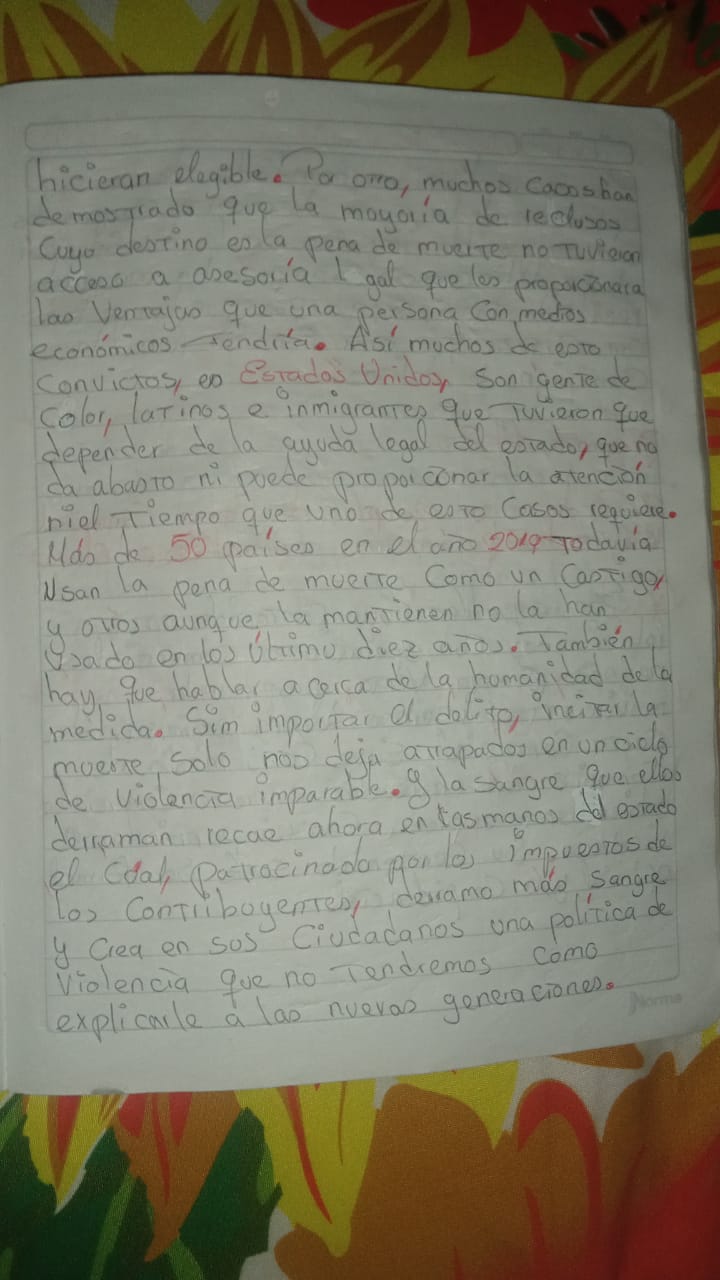 hicieran elegible. Por otro, muchos casos han
demostrado que la mayoría de reclusos
Cuyo destino es la pena de muerte no tuvieron
acceso a asesoría l gal que les proporcionara
las Ventajas que una persona Con medios
económicos tendría. Así muchos de esto
Convictos, en Estados Unidos, son gente de
Color, latinos e inmigrantes que tuvieron que
depender de la ayuda legal del estado, que no
da abasto ni puede proporcionar la atención
ni el tiempo que uno de esto Casos requiere.
Más de 50 países en el año 2019 todavía
Usan la pena de muerte Como un Castigo,
y otros aunque la mantienen no la han
Usado en los último diez años. También
hay que hablar a cerca de la humanidad de la
medida. Sim importar el delito, incitar la
muerte, solo nos deja atrapados en un ciclo
de violencia imparable. y la sangre que ellos
derraman recae ahora en las manos del estado
el Cual, Patrocinado por los impuestos de
los Contribuyentes, derramo más sangre
y Crea en sus Ciudadanos una política de
Violencia que no Tendremos Como
explicarle a las nuevas generaciones.
Norma